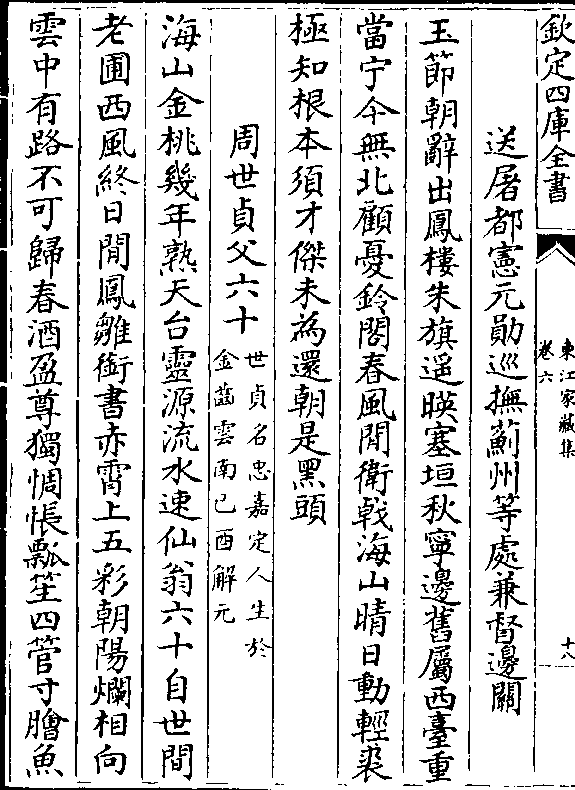 欽定四庫全書
東江家藏集
卷六
十八
送屠都憲元勛巡撫薊州等處兼督邊關
玉節朝辭出鳳樓朱旗遥暎塞垣秋寧邊舊屬西臺重
當宁今無北顧憂鈴閣春風閒衛㦸海山晴日動輕裘
極知根本須才傑未為還朝是黑頭
周世貞父六十
世貞名忠嘉定人生於
金齒雲南己酉解元
海山金桃幾年熟天台靈源流水速仙翁六十自世間
老圃西風終日閒鳳雛銜書赤霄上五彩朝陽爛相向
雲中有路不可歸春酒盈尊獨惆悵瓢笙四管寸膾魚